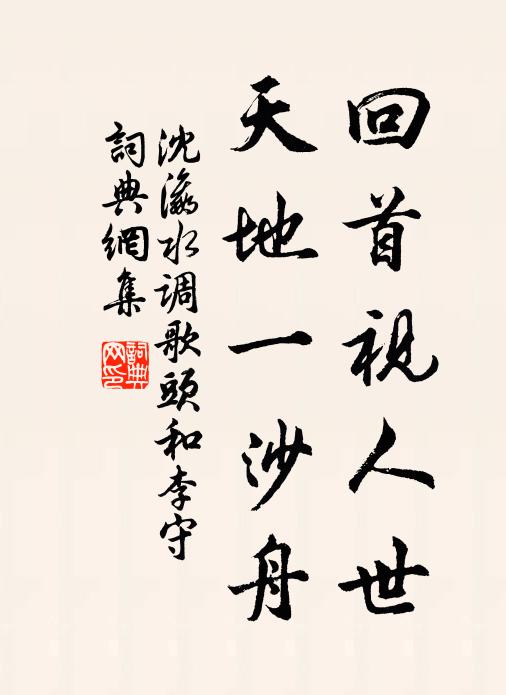 回首视人世
天地一沙舟
沈瀛水调歌头和李守
词典网集
詞典网印